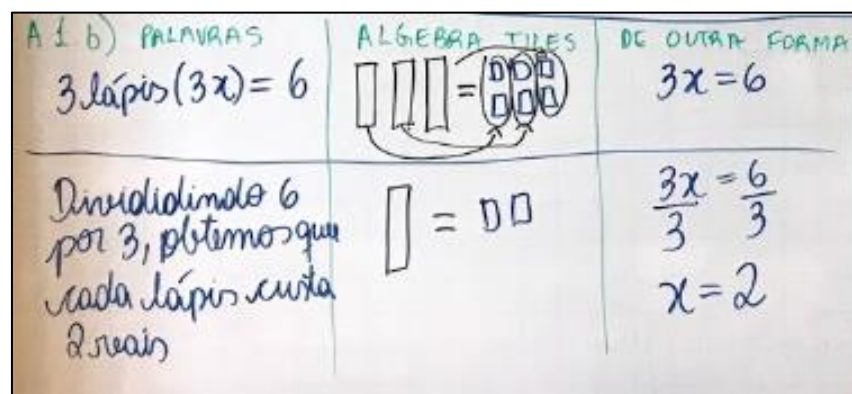 A 1 b) PALAVRAS
ALGEBRA TILES
DE OUTRA FORMA
3 lápis (3x) = 6
=
3x = 6
Divididindo 6
por 3, obtemos que
cada lápis custa
2 reais
=
3x/3 = 6/3
x = 2